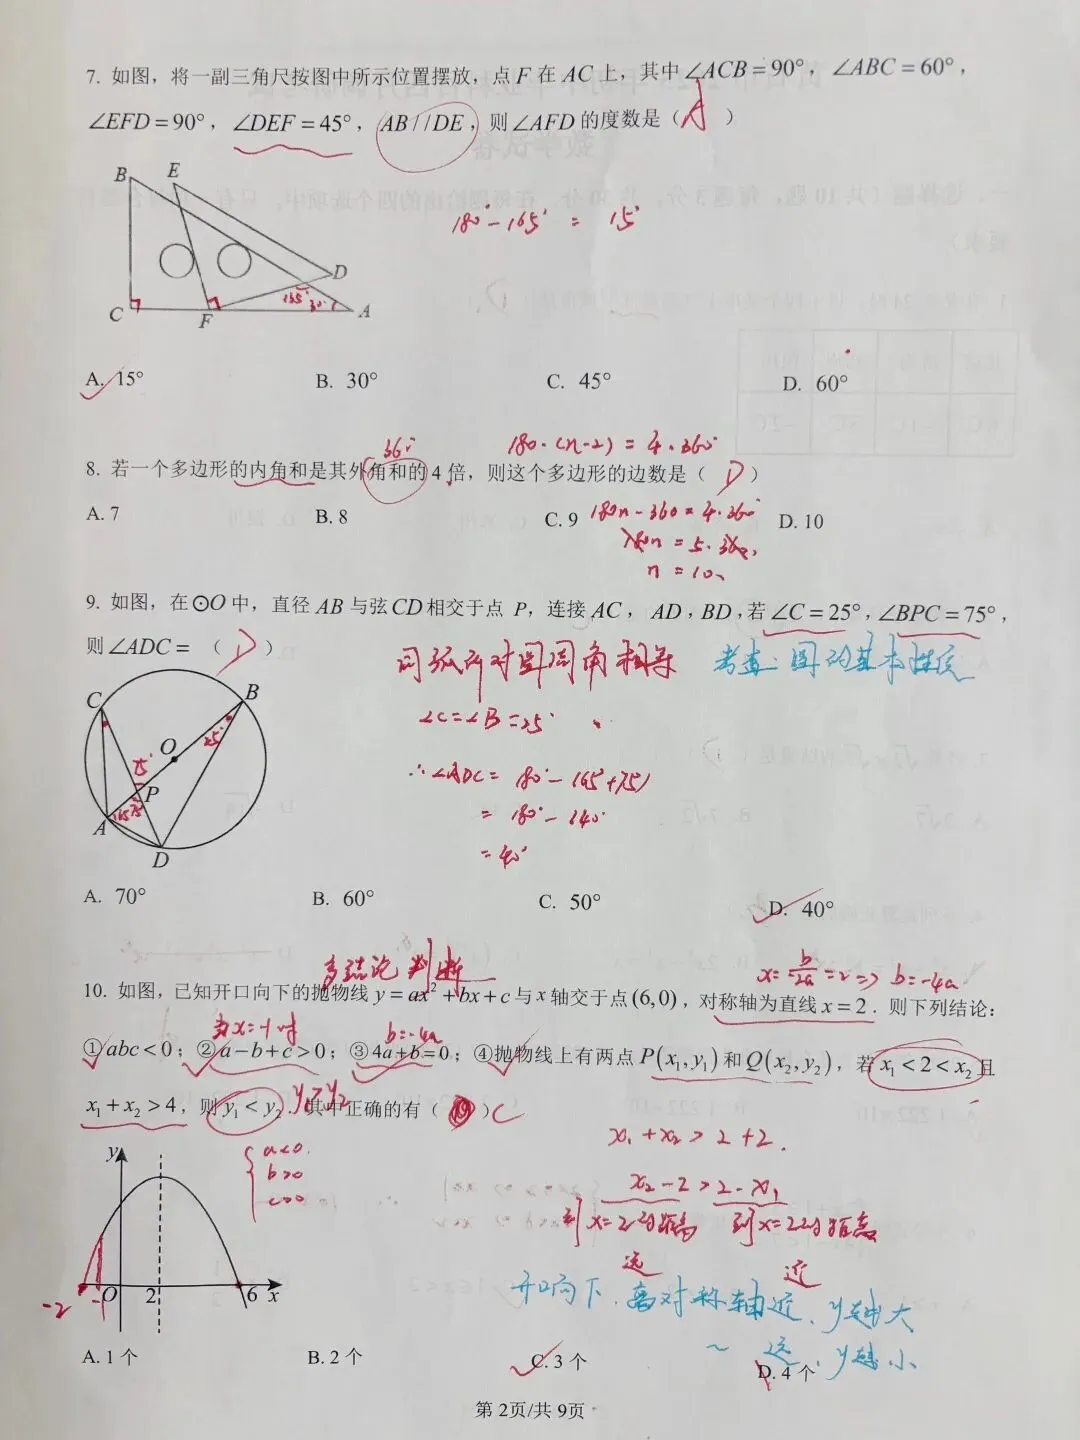 7. 如图，将一副三角尺按图中所示位置摆放，点 F 在 AC 上，其中∠ACB＝90°，∠ABC＝60°，
∠EFD＝90°，∠DEF＝45°，AB//DE，则∠AFD 的度数是（A）
B E
180°-165° = 15°
D
135° 30°
C F A
A. 15° B. 30° C. 45° D. 60°
360° 180·(n-2) = 4·360°
8. 若一个多边形的内角和是其外角和的 4 倍，则这个多边形的边数是（D）
A. 7 B. 8 C. 9 180n-360=4·360° D. 10
180n = 5·360
n = 10
9. 如图，在⊙O 中，直径 AB 与弦 CD 相交于点 P，连接 AC，AD，BD，若∠C＝25°，∠BPC＝75°，
则∠ADC＝（D）
同弧所对圆周角相等 考查：圆的基本性质
C B
∠C=∠B=25°
25°
O
75°
∴∠ADC = 180°-(65°+75°)
P
= 180°-140°
A
= 40°
D
A. 70° B. 60° C. 50° D. 40°
多结论判断 x=-b/2a=2=> b=-4a
10. 如图，已知开口向下的抛物线 y=ax²+bx+c 与 x 轴交于点(6,0)，对称轴为直线 x=2．则下列结论：
当x=-1时 b=-4a
①abc<0；②a-b+c>0；③4a+b=0；④抛物线上有两点 P(x₁,y₁)和 Q(x₂,y₂)，若 x₁<2<x₂且
x₁+x₂>4，则 y₁<y₂．其中正确的有（ ）C
y₁>y₂
x₁+x₂>2+2.
y
a<0
b>0
c>0
x₂-2>2-x₁
到x=2的距离 到x=2的距离
远 近
-2 -1 O 2 6 x
开口向下，离对称轴近，y越大
～ 远，y越小
A. 1个 B. 2个 C. 3个 D. 4个
第 2页/共 9页